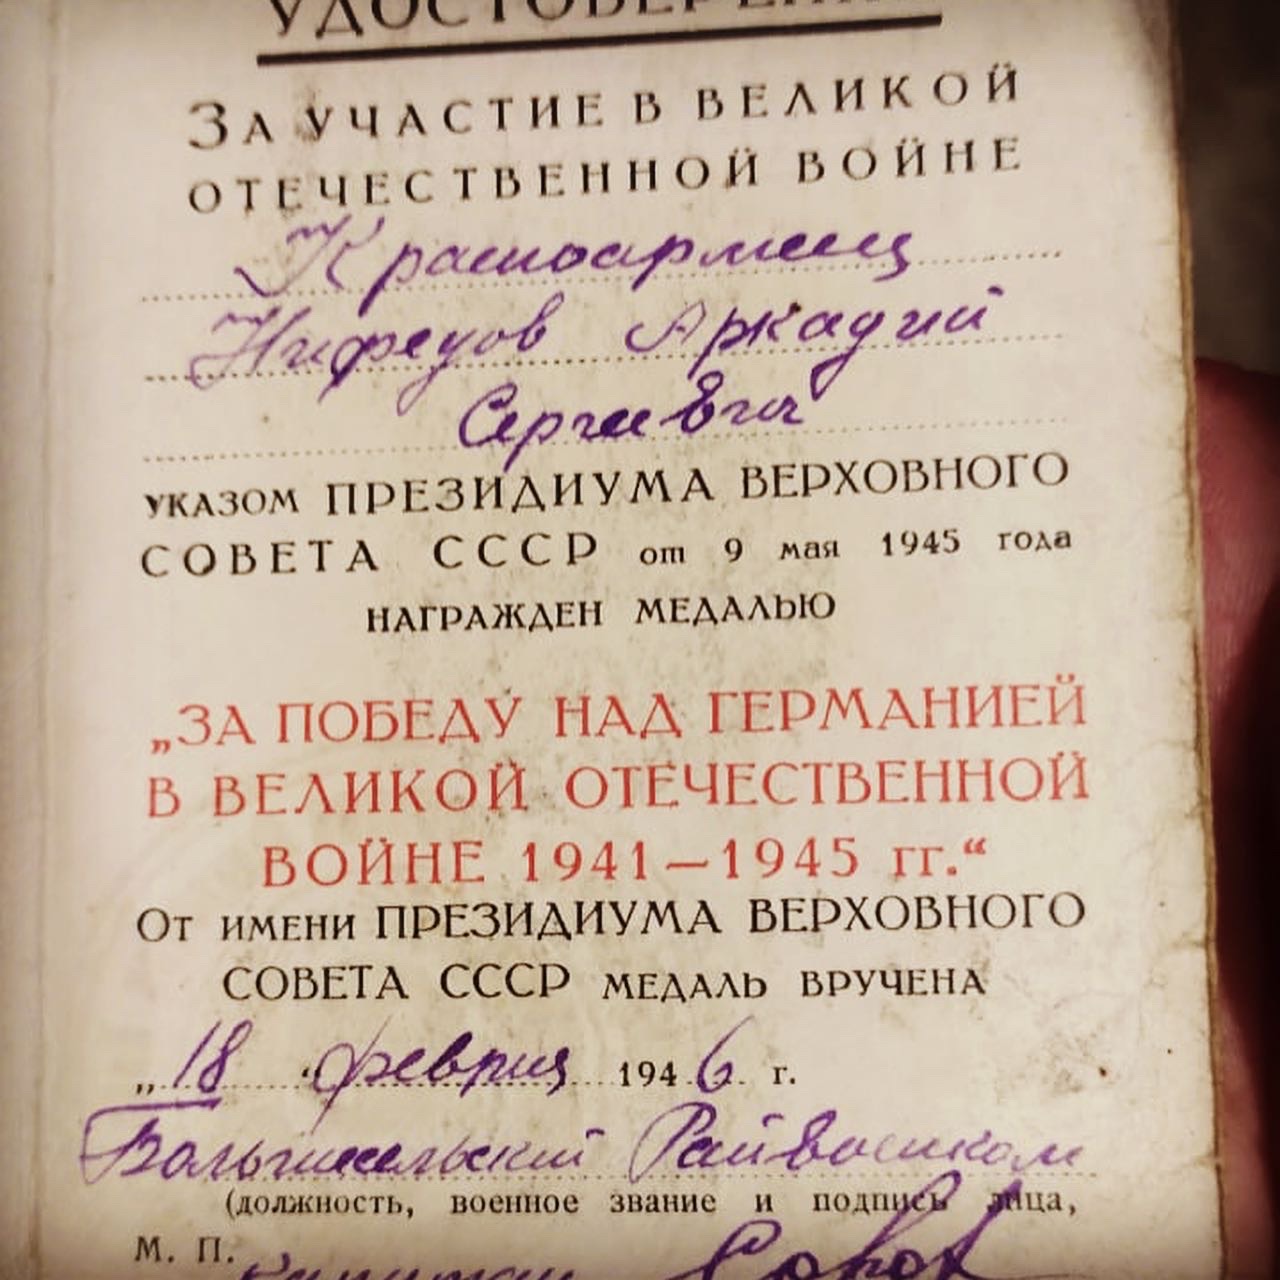 УДОСТОВЕРЕНИЕ
ЗА УЧАСТИЕ В ВЕЛИКОЙ
ОТЕЧЕСТВЕННОЙ ВОЙНЕ
Красноармеец
Нифедов Аркадий
Сергеевич
УКАЗОМ ПРЕЗИДИУМА ВЕРХОВНОГО
СОВЕТА СССР от 9 мая 1945 года
НАГРАЖДЕН МЕДАЛЬЮ
„ЗА ПОБЕДУ НАД ГЕРМАНИЕЙ
В ВЕЛИКОЙ ОТЕЧЕСТВЕННОЙ
ВОЙНЕ 1941—1945 гг.“
ОТ ИМЕНИ ПРЕЗИДИУМА ВЕРХОВНОГО
СОВЕТА СССР МЕДАЛЬ ВРУЧЕНА
„18 “ февраля 1946 г.
Большесельский Райвоенком
(должность, военное звание и подпись лица,
М. П. капитан